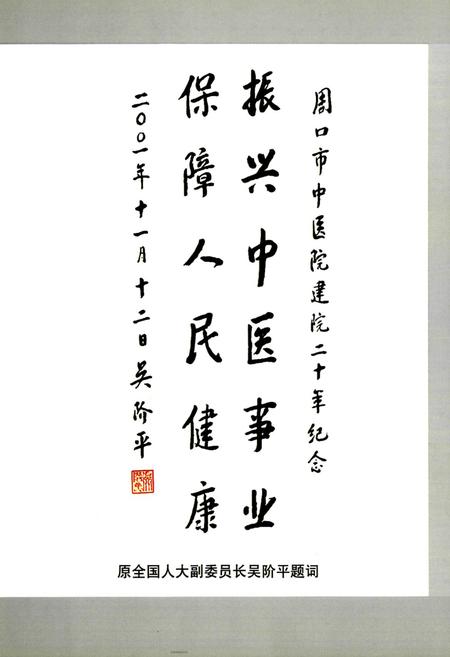 周口市中医院建院二十年纪念
振兴中医事业
保障人民健康
二〇〇一年十一月十二日吴阶平
原全国人大副委员长吴阶平题词